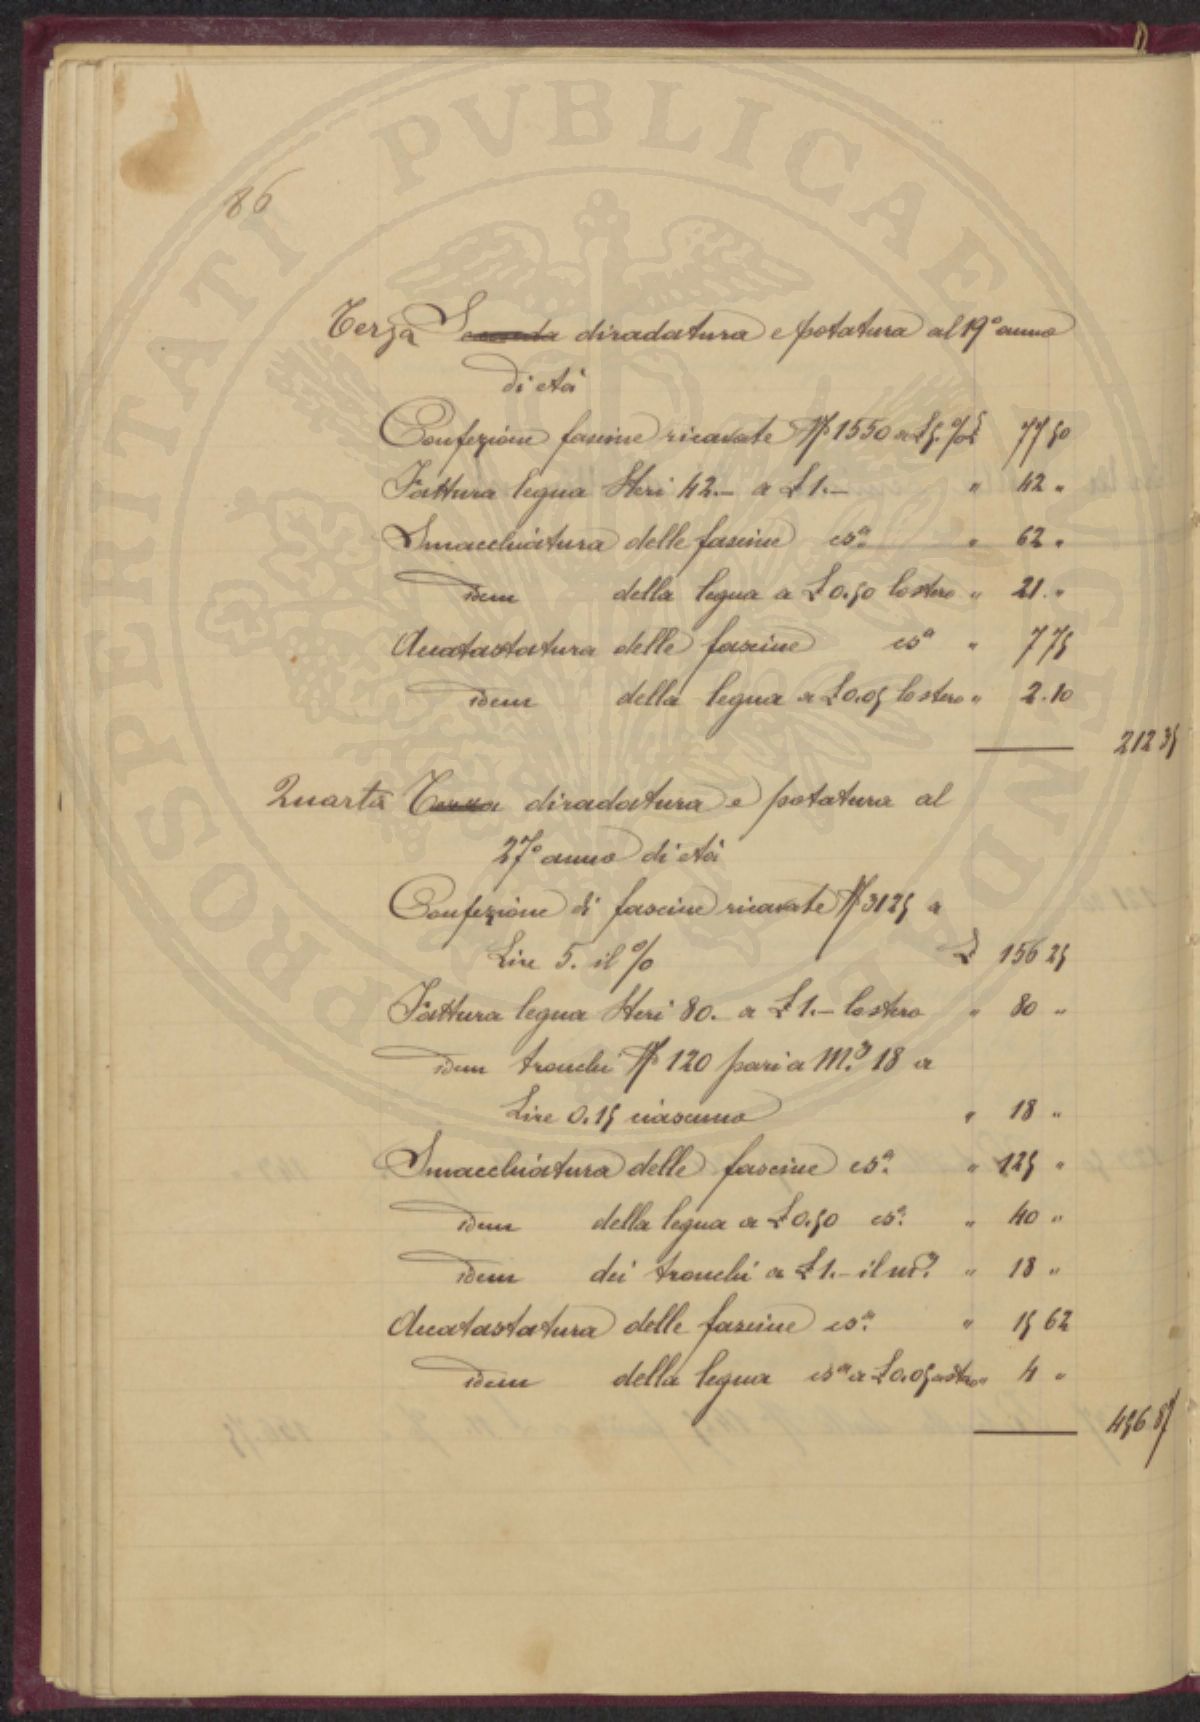 86
Terza Seconda diradatura e potatura al 19° anno
di età
Confezione fascine ricavate N° 1550 a £ 5. % £ 77 50
Fattura legna Steri 42.– a £ 1.– " 42 "
Smacchiatura delle fascine csa. " 62 "
idem della legna a £ 0.50 lo stero " 21. "
Accatastatura delle fascine csa " 7 75
idem della legna a £ 0.05 lo stero " 2.10
212 35
Quarta Terza diradatura e potatura al
27° anno di età
Confezione di fascine ricavate N° 3125 a
Lire 5. il % £ 156 25
Fattura legna Steri 80. a £ 1.– lo stero " 80 "
idem tronchi N° 120 pari a M.³ 18 a
Lire 0.15 ciascuno " 18 "
Smacchiatura delle fascine csa. " 125 "
idem della legna a £ 0.50 csa. " 40 "
idem dei tronchi a £ 1.– il m³. " 18 "
Accatastatura delle fascine csa. " 15 62
idem della legna csa a £ 0.05 a stero " 4 "
456 87
PROSPERITATI PVBLICAE AVGENDAE